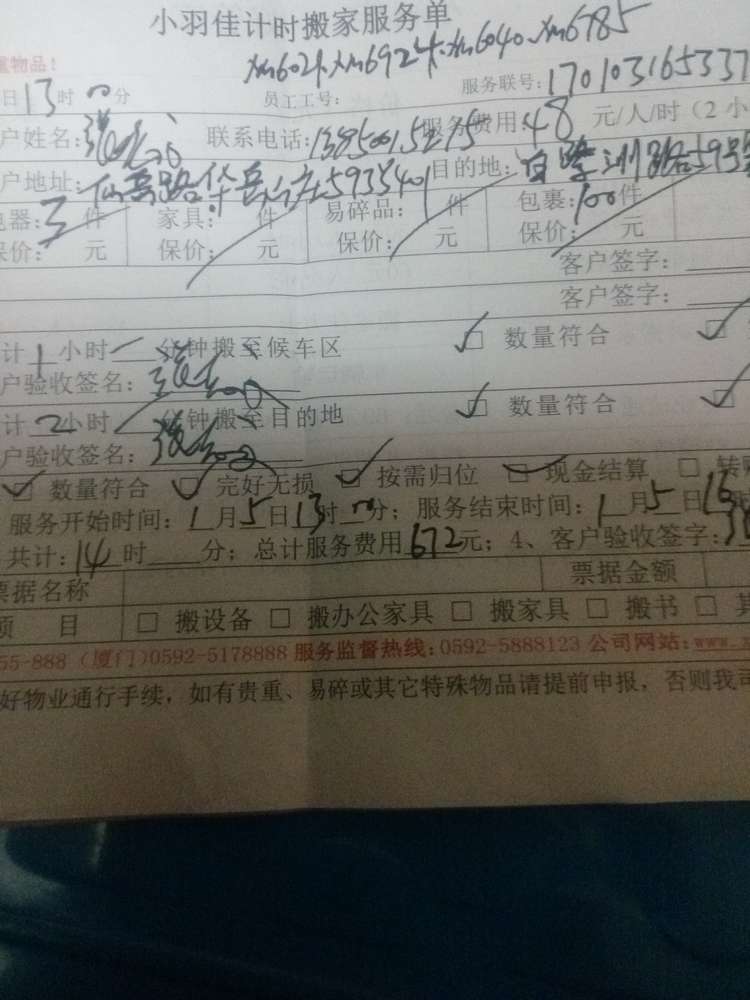 小羽佳计时搬家服务单
xm6021.xm6924.xm6040.xm6785
物品!
日13时00分 员工工号: 服务联号:170103165337
户姓名: 联系电话: 服务费用:48元/人/时(2小
户地址: 目的地:
电器:3件 家具: 件 易碎品: 件 包裹:100件
保价: 元 保价: 元 保价: 元 保价: 元
客户签字:
客户签字:
计1小时 分钟搬至候车区 ☑ 数量符合
户验收签名:
计2小时 分钟搬至目的地 ☑ 数量符合
户验收签名:
☑ 数量符合 ☑ 完好无损 ☑ 按需归位 ☑ 现金结算 □ 转账
服务开始时间:1月5日13时00分;服务结束时间:1月5日
共计:14时 分;总计服务费用672元;4、客户验收签字:
票据名称 票据金额
项 目 □ 搬设备 □ 搬办公家具 □ 搬家具 □ 搬书 □
55-888 (厦门)0592-5178888 服务监督热线:0592-5888123 公司网站:www.
好物业通行手续,如有贵重、易碎或其它特殊物品请提前申报,否则我司